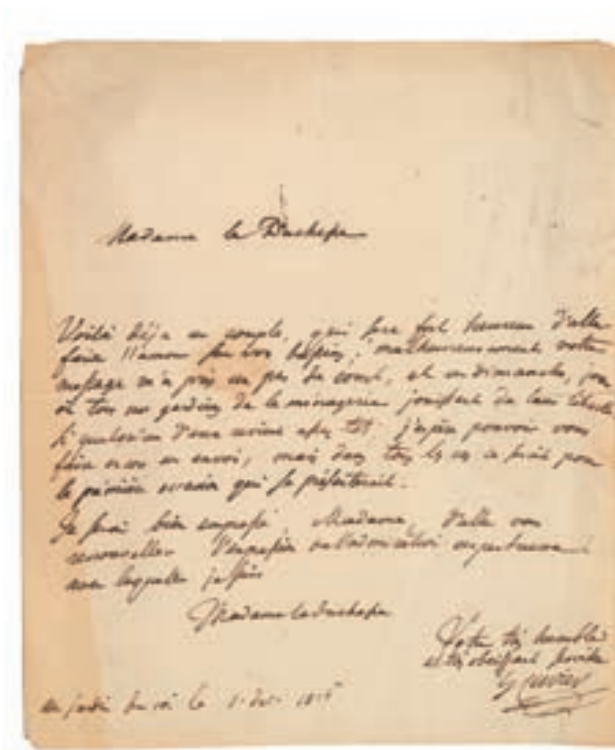 Madame la Duchesse
Voilà déja un couple, qui sera fort heureux d'aller
faire l'amour sur vos bassins; malheureusement votre
message m'a pris un peu de court, et un dimanche, jour
où tous nos gardiens de la ménagerie jouissent de leur liberté
Si quelqu'un d'eux revient assez tôt j'espère pouvoir vous
faire encore un envoi, mais dans tous les cas ce sera pour
la première occasion qui se présenterait.
Je serai bien empressé, Madame, d'aller vous
renouveller l'expression de l'admiration respectueuse
avec laquelle je suis
Madame la Duchesse
Votre très humble
et très obéissant serviteur
G Cuvier
au jardin du roi le